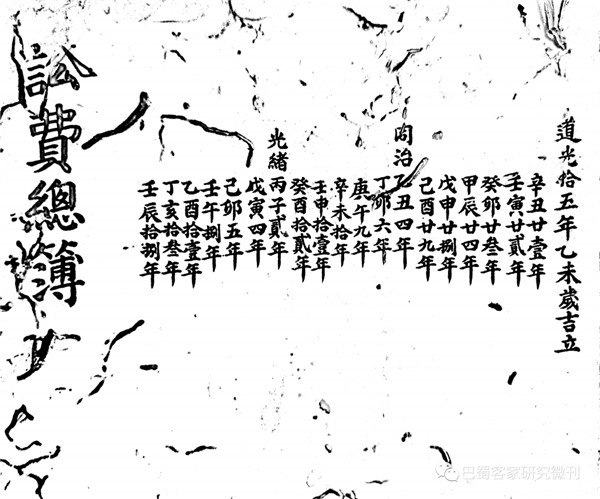 道光拾五年乙未歲吉立
辛丑廿壹年
壬寅廿貳年
癸卯廿叁年
甲辰廿四年
戊申廿捌年
己酉廿九年
同治乙丑四年
丁卯六年
庚午九年
辛未拾年
壬申拾壹年
癸酉拾貳年
光緒丙子貳年
戊寅四年
己卯五年
壬午捌年
乙酉拾壹年
丁亥拾叁年
壬辰拾捌年
訟費總簿
巴蜀客家研究微刊